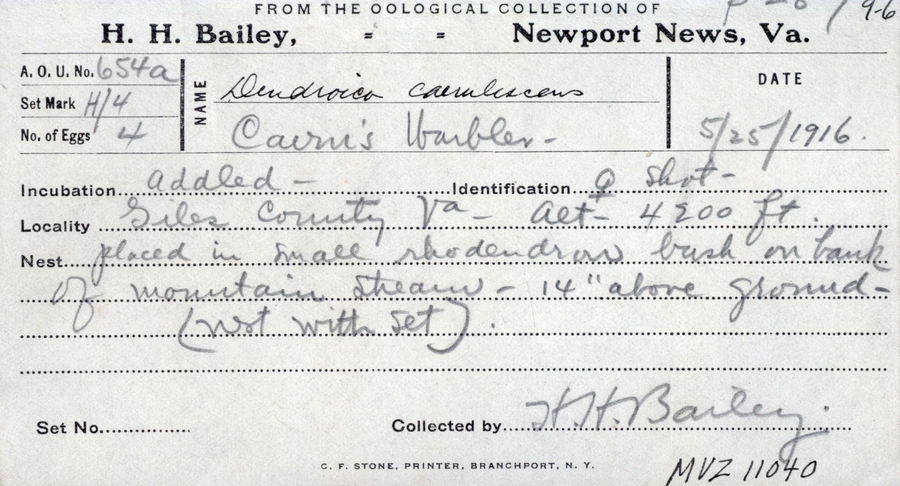 FROM THE OOLOGICAL COLLECTION OF
H. H. Bailey, = = Newport News, Va.
A. O. U. No. 654a
Set Mark H/4
No. of Eggs 4
NAME
Dendroica caerulescens
Cairn's Warbler -
DATE
5/25/1916.
Incubation addled - Identification ♀ shot -
Locality Giles County Va - Alt - 4200 ft.
Nest placed in small rhodendron bush on bank
of mountain stream - 14" above ground -
(not with set).
Set No.
Collected by H. H. Bailey.
C. F. STONE, PRINTER, BRANCHPORT, N. Y.
MVZ 11040